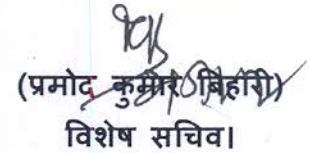 (प्रमोद कुमार बिहारी)
विशेष सचिव।